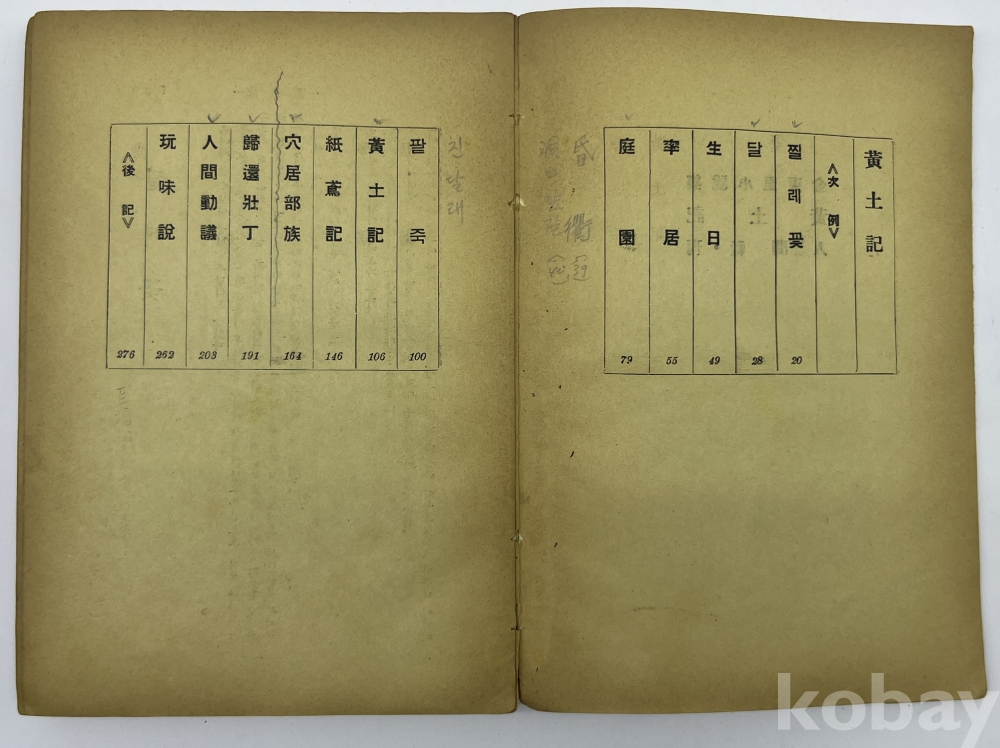 黃土記
≪次例≫
찔레꽃 20
달 28
生日 49
率居 55
庭園 79
昏衢
진달래
팥죽 100
黃土記 106
紙鳶記 146
穴居部族 164
歸還壯丁 191
人間動議 203
玩味說 262
≪後記≫ 276
kobay